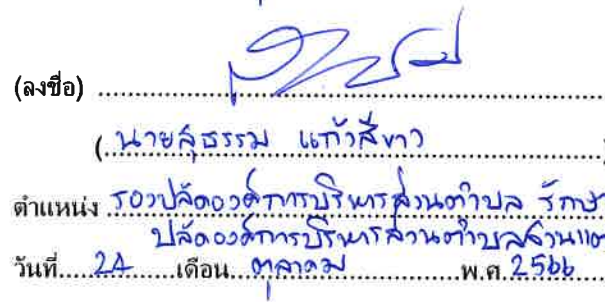 (ลงชื่อ) ..........
(นายสุธรรม แก้วสีขาว
ตำแหน่ง รองปลัดองค์การบริหารส่วนตำบล รักษ
ปลัดองค์การบริหารส่วนตำบลสวนแต
วันที่ 24 เดือน ตุลาคม พ.ศ. 2566